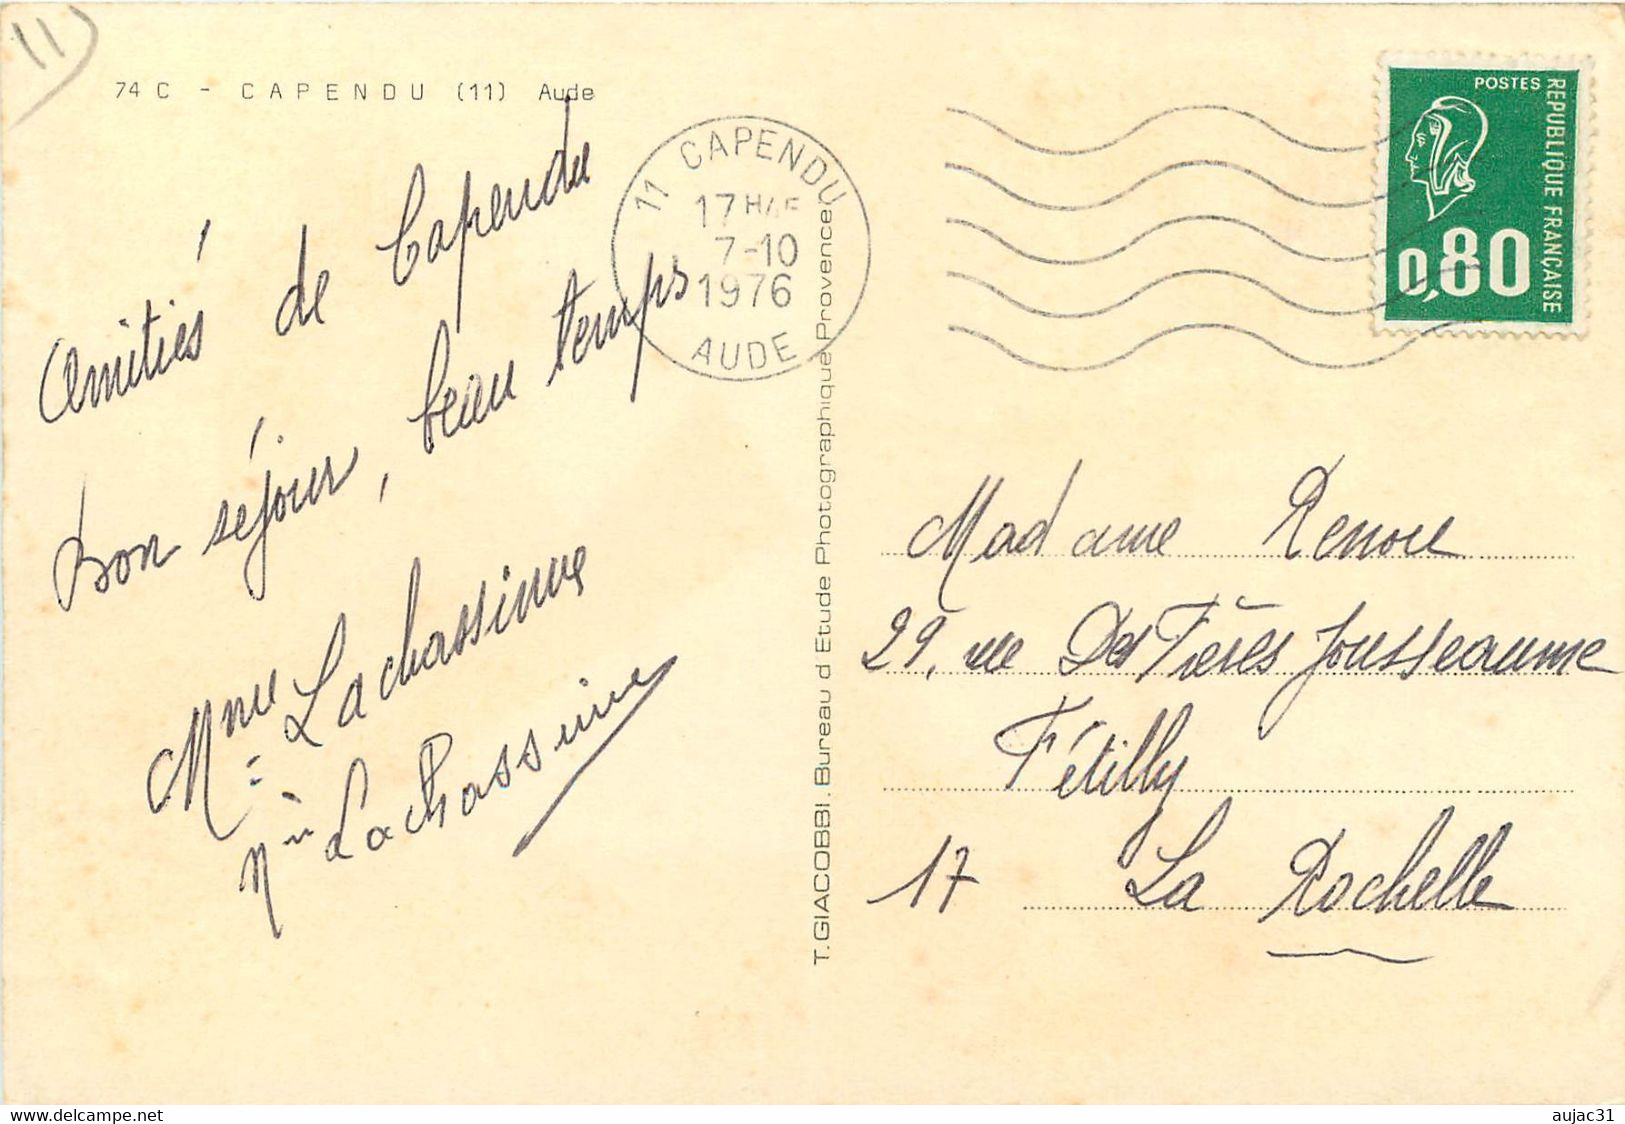 11
74 C - CAPENDU (11) Aude
Amitiés de Capendu
Bon séjour, beau temps
Mme Lachassinne
Lachassinne
11 CAPENDU
17H
7-10
1976
AUDE
T. GIACOBBI. Bureau d Etude Photographique Provence
POSTES
REPUBLIQUE FRANÇAISE
0,80
Madame Renou
29, rue Des Frères Jousseaume
Fétilly
17 La Rochelle
www.delcampe.net
aujac31